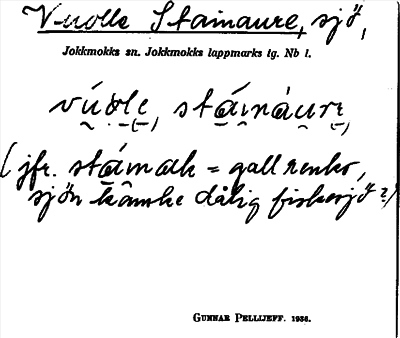 Vuolle Stainaure, sjö,
Jokkmokks sn. Jokkmokks lappmarks tg. Nb l.
vúo̯lē, stáináurē
(jfr. stáinak = gall renko,
sjön kanske dålig fiskesjö?)
GUNNAR PELLIJEFF. 1936.